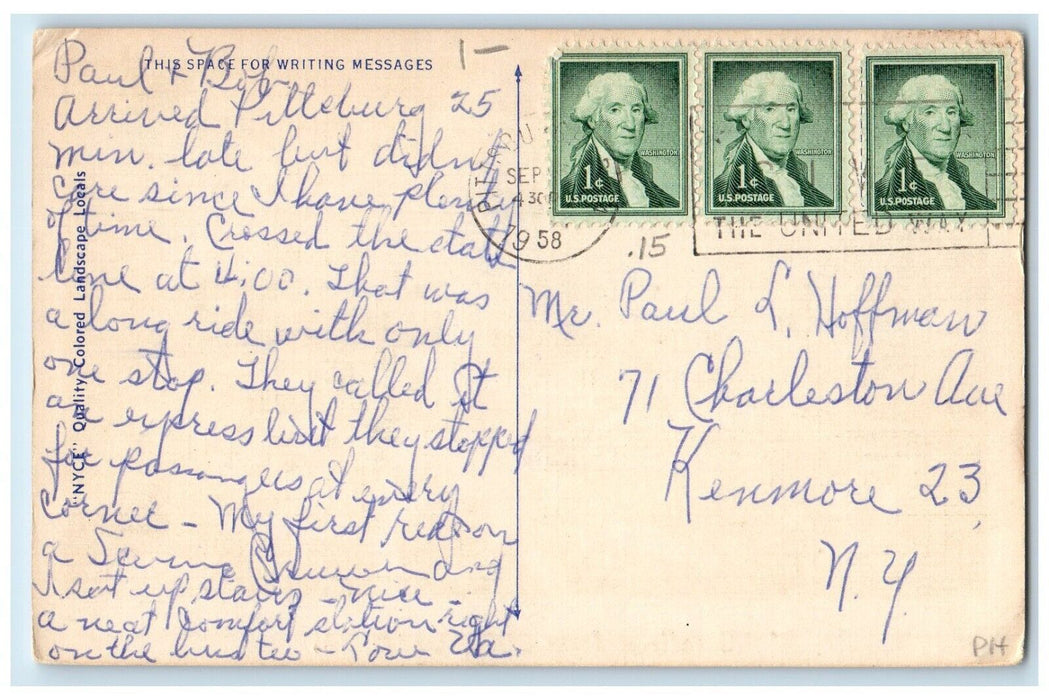 THIS SPACE FOR WRITING MESSAGES
1-
Paul + Bob
Arrived Pittsburg 25
min. late but didnt
care since I have plenty
of time. Crossed the state
line at 4:00. That was
a long ride with only
one stop. They called it
an express but they stopped
for passangers at every
corner - My first ride on
a Scenic Cruiser and
I sat up stairs - nice -
a neat comfort station right
on the bus too - Love
"NYCE" Quality Colored Landscape Locals
WASHINGTON
1¢
U.S. POSTAGE
WASHINGTON
1¢
U.S. POSTAGE
WASHINGTON
1¢
U.S. POSTAGE
SEP
4 30
1958
THE UNITED WAY
.15
Mr. Paul L. Hoffman
71 Charleston Ave
Kenmore 23,
N.Y.
PH